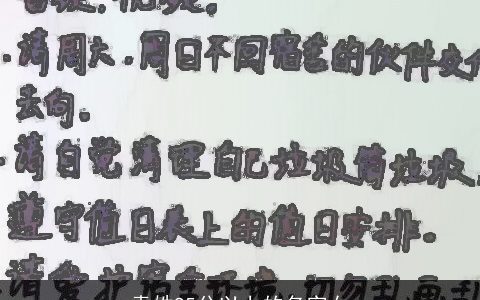 .请周六.周日不回宿舍的伙伴交
去向。
.请自觉清理自己垃圾筒垃圾,
遵守值日表上的值日安排。
请爱护宿舍环境,切勿乱画乱
95分以上的名字